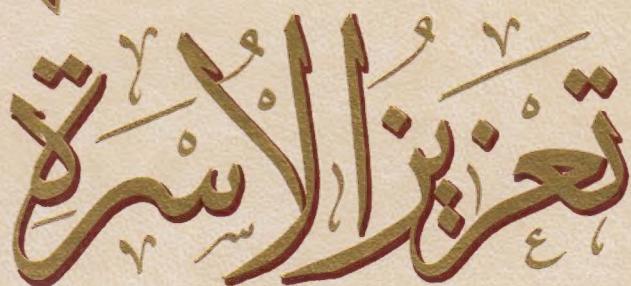 تعزيز الأسرة